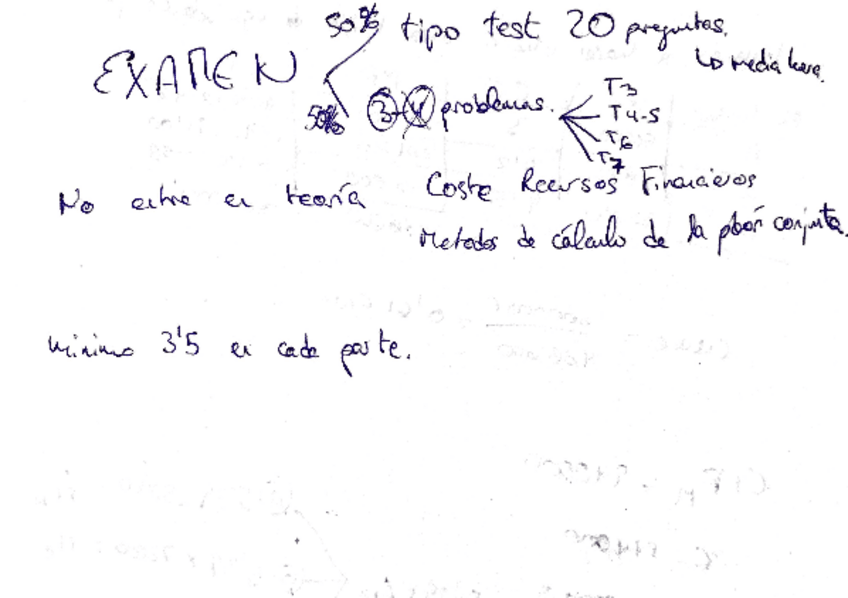 50% tipo test 20 preguntas.
↳ media hora.
EXAMEN
50% 3-4 problemas.
T-3
T4-5
T6
T7
No entra en teoría Coste Recursos Financieros
Metodos de cálculo de la pbón conjunta.
mínimo 3'5 en cada parte.